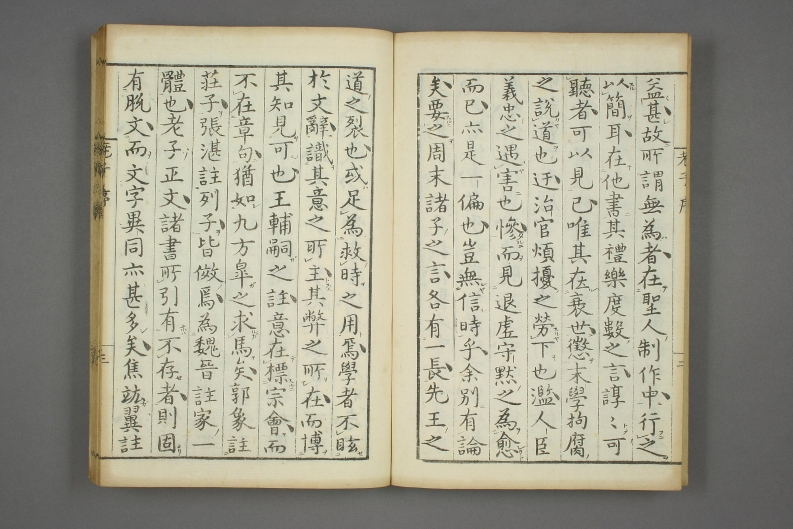 益甚故所謂無為者在聖人制作中行之
以簡耳在他書其禮樂度數之言諄〻可
聽者可以見已唯其在衰世懲末學拘腐
之說道也迂治官煩擾之勞下也濫人臣
義忠之遇害也慘而見退虛守默之為愈
而已亦是一偏也豈無信時乎余別有論
矣要之周末諸子之言各有一長先王之
道之裂也或足為救時之用焉學者不眩
於文辭識其意之所主其弊之所在而博
其知見可也王輔嗣之註意在標宗會而
不在章句猶如九方皐之求馬矣郭象註
莊子張湛註列子皆倣焉為魏晉註家一
體也老子正文諸書所引有不存者則固
有脫文而文字異同亦甚多矣焦竑翼註
老子序
三